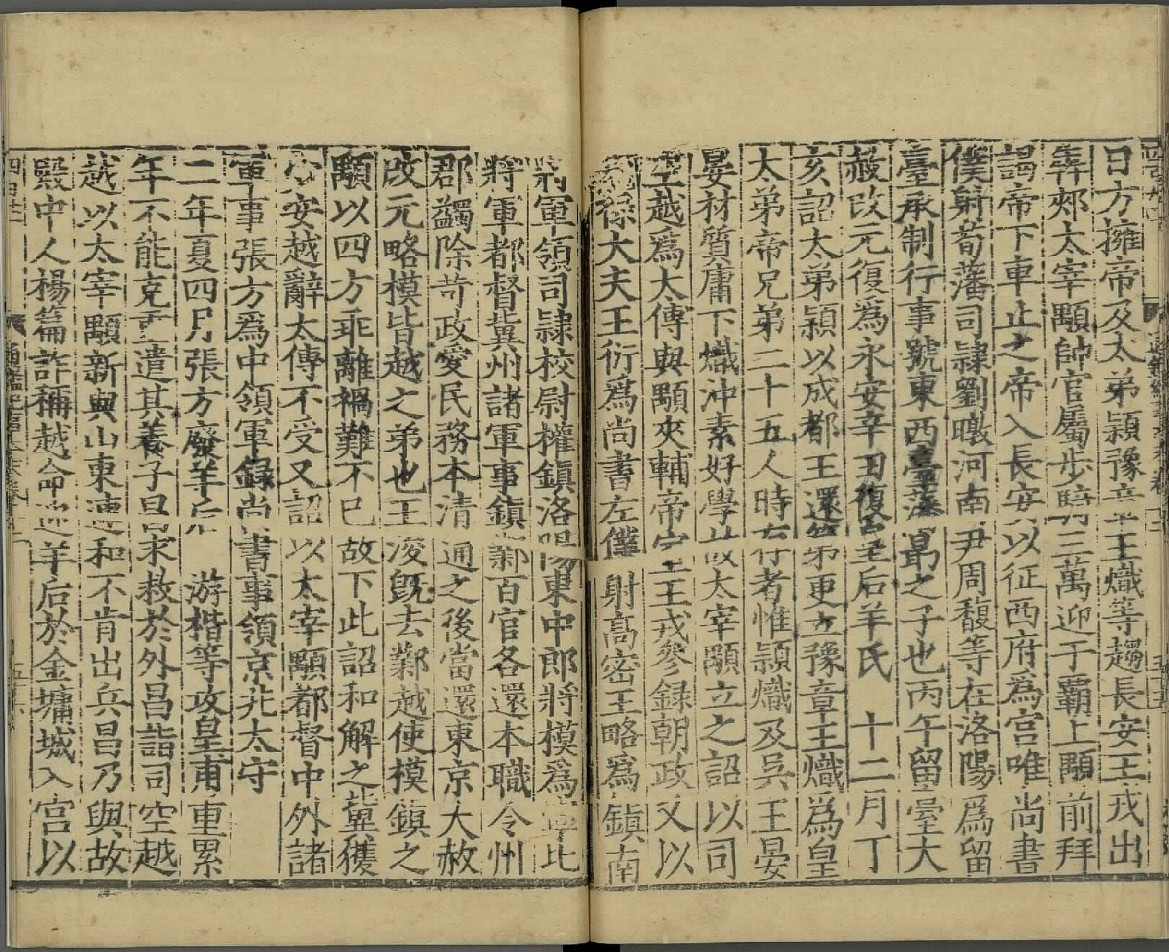 日方擁帝及太弟穎豫章王熾等趨長安王戎出
犇郟太宰顒帥官屬步騎三萬迎于霸上顒前拜
謁帝下車止之帝入長安以征西府為宫唯尚書
僕射荀藩司隷劉暾河南尹周馥等在洛陽為留
臺承制行事號東西臺藩勗之子也丙午留臺大
赦改元復為永安辛丑復皇后羊氏　十二月丁
亥詔太弟穎以成都王還第更立豫章王熾為皇
太弟帝兄弟二十五人時存者惟穎熾及吳王晏
晏材質庸下熾沖素好學故太宰顒立之詔以司
空越為太傅與顒夾輔帝室王戎參錄朝政又以
光祿大夫王衍為尚書左僕射高密王略為鎮南
將軍領司隷校尉權鎮洛陽東中郎將模為寧北
將軍都督冀州諸軍事鎮鄴百官各還本職令州
郡蠲除苛政愛民務本清通之後當還東京大赦
改元略模皆越之弟也王浚旣去鄴越使模鎮之
顒以四方乖離禍難不已故下此詔和解之冀獲
少安越辭太傅不受又詔以太宰顒都督中外諸
軍事張方為中領軍錄尚書事領京兆太守
二年夏四月張方廢羊后　游楷等攻皇甫重累
年不能克重遣其養子昌求救於外昌詣司空越
越以太宰顒新與山東連和不肯出兵昌乃與故
殿中人楊篇詐稱越命迎羊后於金墉城入宫以